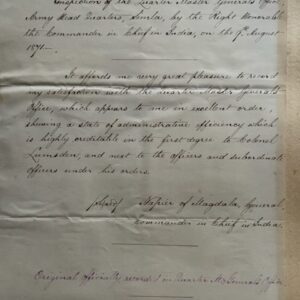 Inspection of the Quarter Master Generals Office
Army Head Quarters, Simla, by the Right Honorable
the Commander in Chief in India, on the 9th August
187
It affords me very great pleasure to record
my satisfaction with the Quarter Master Generals
Office, which appears to me in excellent order,
shewing a state of administrative efficiency which
is highly creditable in the first degree to Colonel
Lumsden, and next to the officers and subordinate
officers under his orders.
Napier of Magdala, General
Commander in Chief in India.
Original officially record in Quarter Mr General's Office